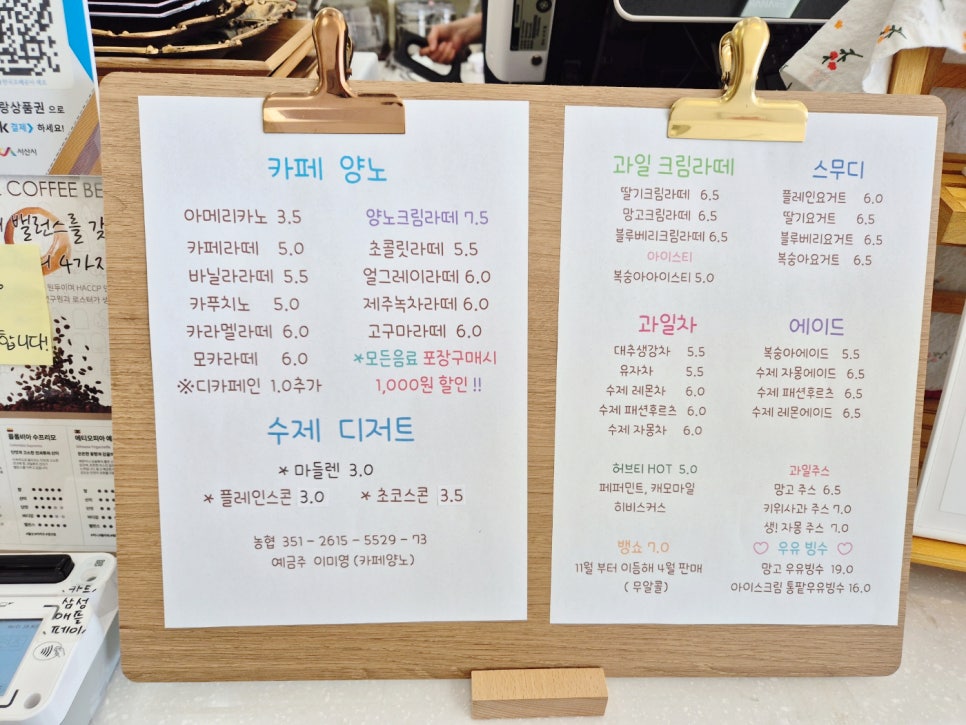 랑상품권 으로
k 결제》 하세요!
서산시
COFFEE BE
밸런스를 갖
4가지
원두이며 HACCP
합니다!
콜롬비아 수프리모
에티오피아 예
카페 양노
아메리카노 3.5
카페라떼 5.0
바닐라라떼 5.5
카푸치노 5.0
카라멜라떼 6.0
모카라떼 6.0
※디카페인 1.0추가
양노크림라떼 7.5
초콜릿라떼 5.5
얼그레이라떼 6.0
제주녹차라떼 6.0
고구마라떼 6.0
*모든음료 포장구매시
1,000원 할인!!
수제 디저트
* 마들렌 3.0
* 플레인스콘 3.0 * 초코스콘 3.5
농협 351 - 2615 - 5529 - 73
예금주 이미영 (카페양노)
과일 크림라떼
딸기크림라떼 6.5
망고크림라떼 6.5
블루베리크림라떼 6.5
아이스티
복숭아아이스티 5.0
스무디
플레인요거트 6.0
딸기요거트 6.5
블루베리요거트 6.5
복숭아요거트 6.5
과일차
대추생강차 5.5
유자차 5.5
수제 레몬차 6.0
수제 패션후르츠 6.0
수제 자몽차 6.0
에이드
복숭아에이드 5.5
수제 자몽에이드 6.5
수제 패션후르츠 6.5
수제 레몬에이드 6.5
허브티 HOT 5.0
페퍼민트, 캐모마일
히비스커스
과일주스
망고 주스 6.5
키위사과 주스 7.0
생! 자몽 주스 7.0
뱅쇼 7.0
11월 부터 이듬해 4월 판매
( 무알콜)
♡ 우유 빙수 ♡
망고 우유빙수 19.0
아이스크림 통팥우유빙수 16.0
카드
삼성
애플
페이